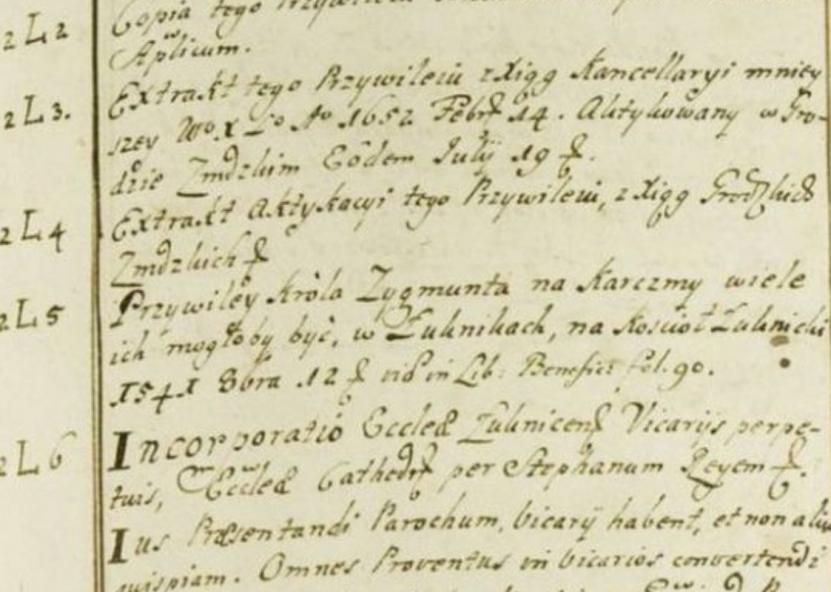 2 L 2 Copia tego Przywileiu
Aplicum.
Extrakt tego Przywileiu z Xiąg Kancellaryi mniey-
2 L 3. szey W° X L° A° 1652 Febr 14. Aktykowany w Gro-
dzie Zmdzkim Eodem Iulij 19
2 L 4 Extrakt Aktykacyi tego Przywileiu, z Xiąg Grodzkich
Zmdzkich
2 L 5 Przywiley Króla Zygmunta na Karczmy wiele
ich mogłoby być, w Łuknikach, na Kościoł Łuknicki
1541 8bra 12 vid in Lib: Benefici Fol. 90.
2 L 6 Incorporatio Eccleæ Łuknicen Vicarijs perpe-
tuis, Eccleæ Cathedr per Stephanum Regem
Ius Præsentandi Parochum, Vicarij habent, et non alius
quispiam. Omnes Proventus in Vicarios convertendi